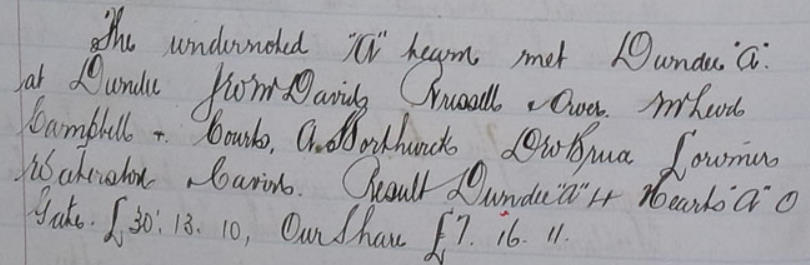 The undernoted "A" team met Dundee "A".
at Dundee from David, Russell & Over. McLeod
Campbell + Courts, A. Borthwick Low Bruce Lorimer
Waterston Cavin. Result Dundee "A" 4 Hearts "A" 0
Gate. £30. 13. 10, Our Share £7. 16. 11.